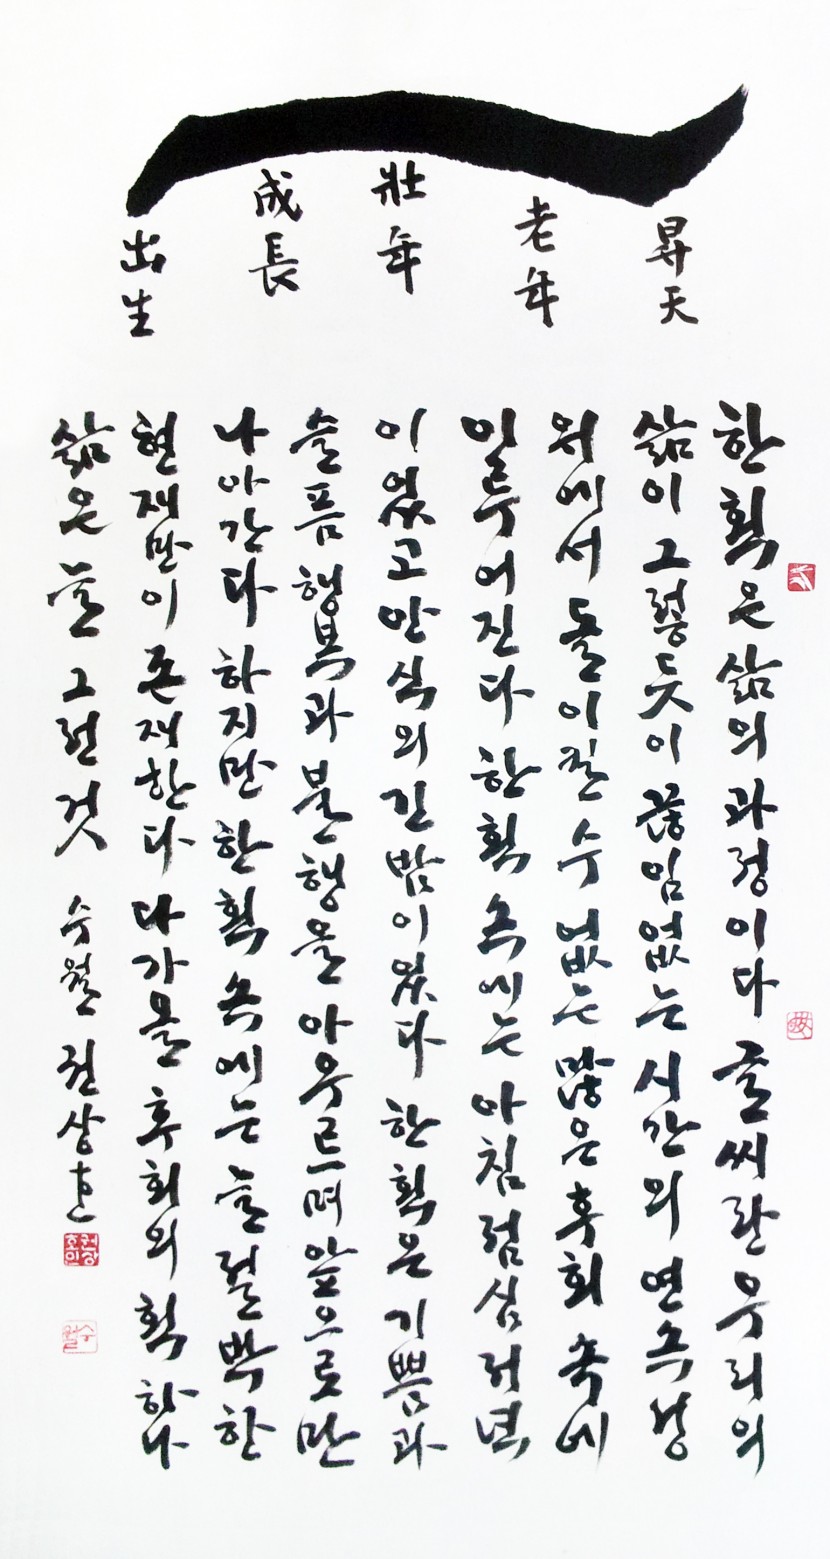 出生
成長
壯年
老年
昇天
한 획은 삶의 과정이다 글씨란 우리의
삶이 그렇듯이 끊임없는 시간의 연속성
위에서 돌이킬 수 없는 많은 후회 속에
이루어진다 한 획 속에는 아침 점심 저녁
이 있고 안식의 긴 밤이 있다 한 획은 기쁨과
슬픔 행복과 불행을 아우르며 앞으로만
나아간다 하지만 한 획 속에는 늘 절박한
현재만이 존재한다 다가올 후회의 획 하나
삶은 늘 그런 것 수월 권상호
권상호인
수월